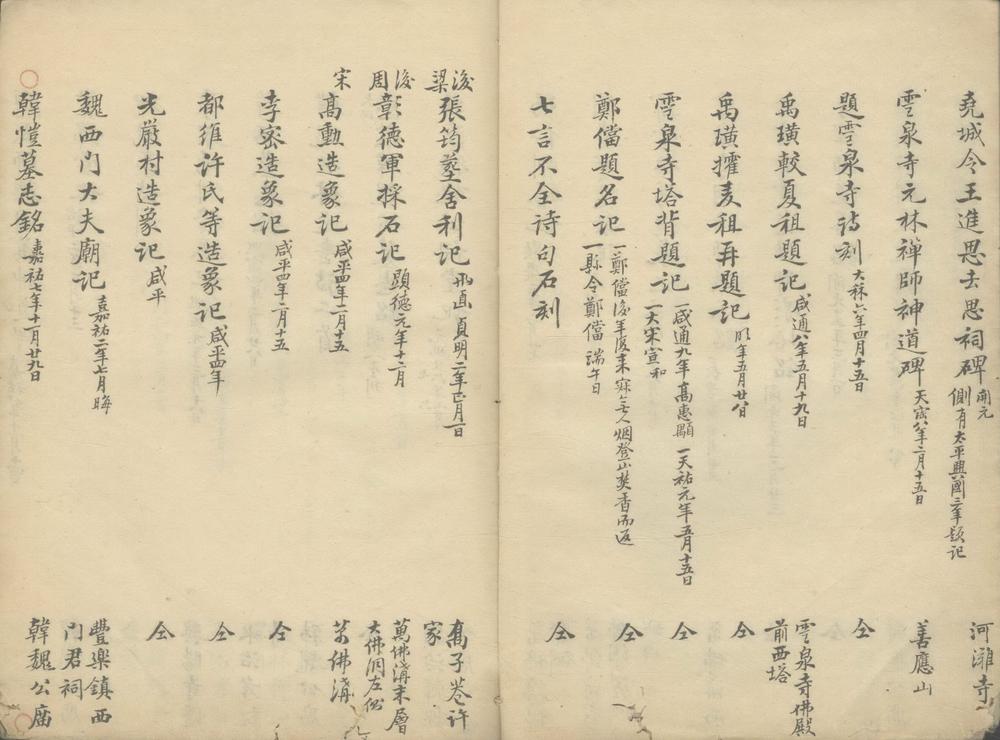 堯城令王進思去思祠碑 開元 側有太平興國三年題記 河灘寺
雲泉寺元林禪師神道碑 天寶八年二月十五日 善應山
題雲泉寺詩刻 大蔴六年四月十五日 仝
禹璜較夏租題記 咸通八年五月十九日 雲泉寺佛殿前西塔
禹璜擢麦租再題記 明年五月廿八日 仝
雲泉寺塔背題記 一咸通九年高惠顯 一天祐元年五月十五日 一大宋宣和 仝
鄭儅題名記 一鄭儅後年复来寂無人烟登山焚香而返 一縣令鄭儅端午日 仝
七言不全詩句石刻 仝
後梁 張筠塟舍利記 邢直 貞明二年正月一日 高子巷许家
後周 彰德軍採石記 顕德元年十二月 萬佛溝末層大佛洞左側
宋 高勳造象記 咸平四年二月十五 萬佛溝
李密造象記 咸平四年二月十五 仝
都維许氏等造象記 咸平四年 仝
光嚴村造象記 咸平 仝
魏西門大夫廟記 嘉祐二年七月晦 豐樂鎮西门君祠
韓愷墓志銘 嘉祐七年十一月廿九日 韓魏公庙